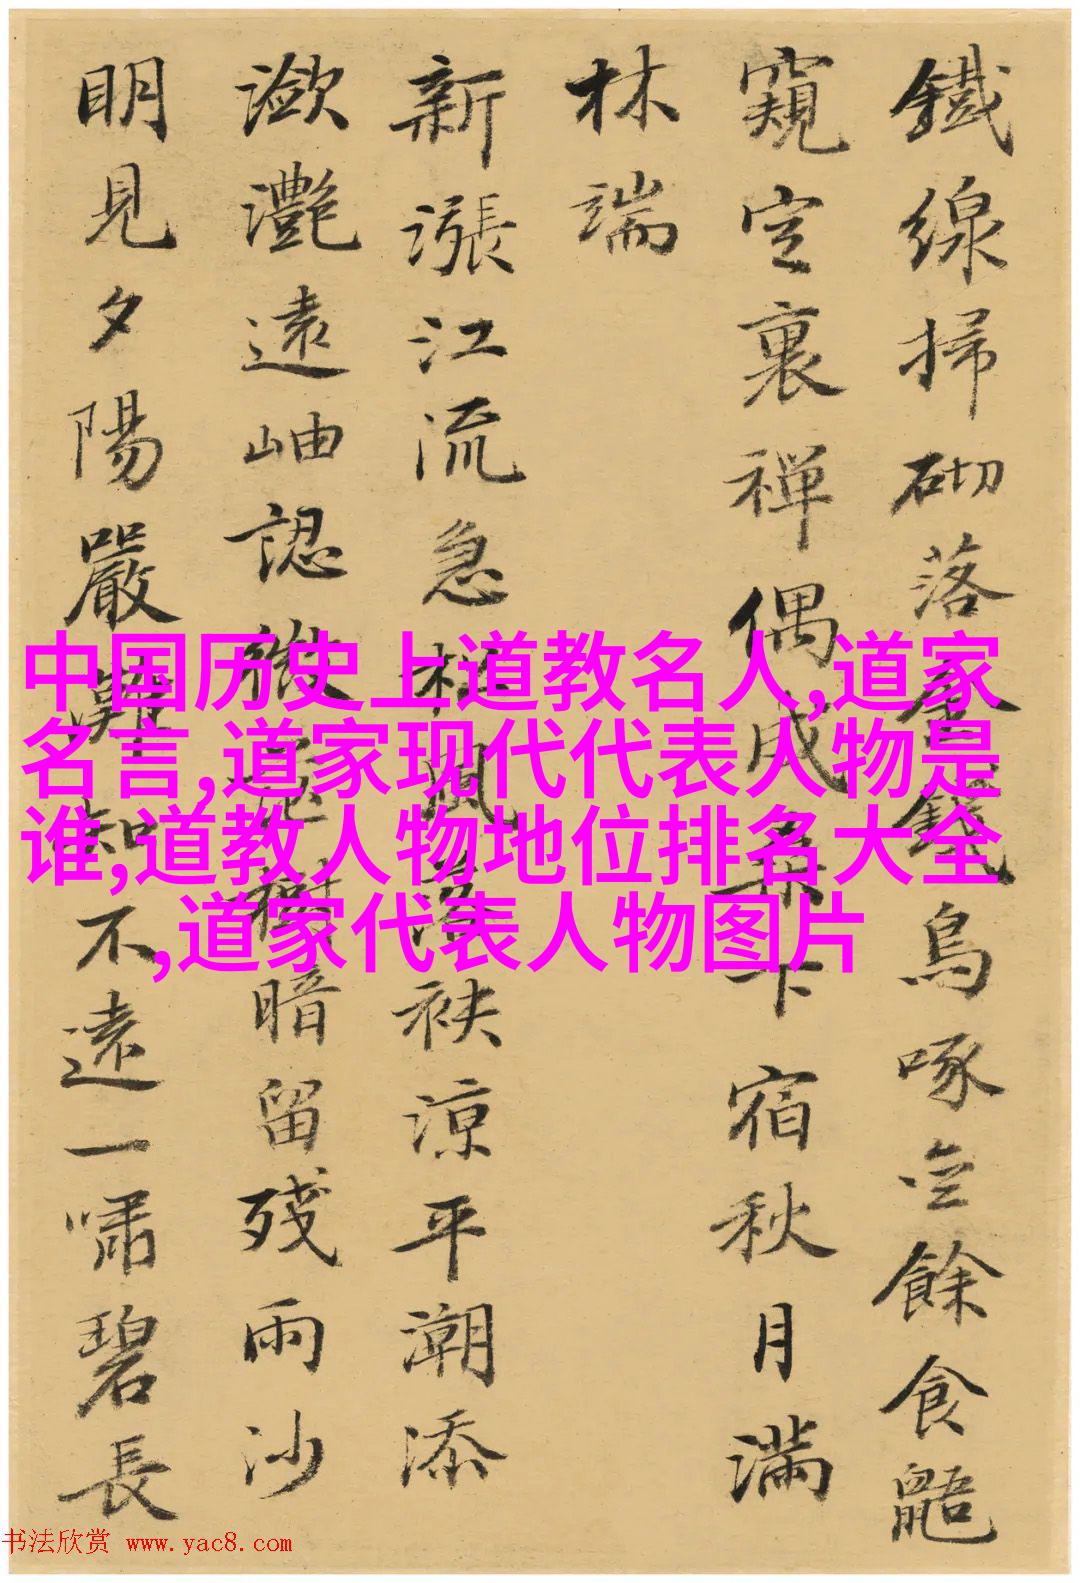 鐵線掃砌落金錢烏啄空餘食鼯
窺空裏禪偶成桑下宿秋月滿
林端
新漲江流急風袂涼平潮添
瀲灩遠岫認微樹暗留殘雨沙
明見夕陽嚴灘知不遠一嘯碧長
中国历史上道教名人,道家
名言,道家现代代表人物是
谁,道教人物地位排名大全
,道家代表人物图片
书法欣赏 www.yac8.com